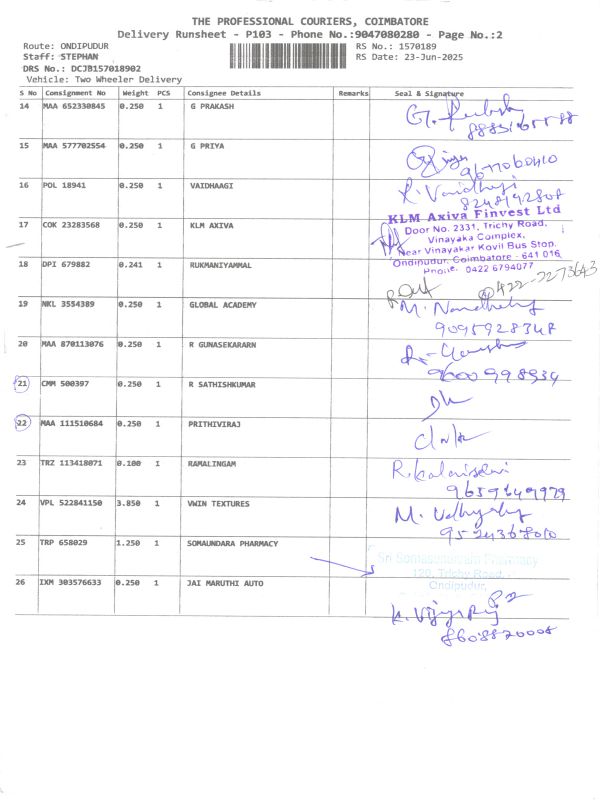 THE PROFESSIONAL COURIERS, COIMBATORE
Delivery Runsheet - P103 - Phone No.:9047080280 - Page No.:2
Route: ONDIPUDUR RS No.: 1570189
Staff: STEPHAN RS Date: 23-Jun-2025
DRS No.: DCJB157018902
Vehicle: Two Wheeler Delivery
S No Consignment No Weight PCS Consignee Details Remarks Seal & Signature
14 MAA 652330845 0.250 1 G PRAKASH
15 MAA 577702554 0.250 1 G PRIYA
9677060410
16 POL 18941 0.250 1 VAIDHAAGI
8248192808
17 COK 23283568 0.250 1 KLM AXIVA
KLM Axiva Finvest Ltd
Door No. 2331, Trichy Road,
Vinayaka Complex,
Near Vinayakar Kovil Bus Stop,
Ondipudur, Coimbatore - 641 016
Phone: 0422 6794077
18 DPI 679882 0.241 1 RUKMANIYAMMAL
0422-2273643
19 NKL 3554389 0.250 1 GLOBAL ACADEMY
20 MAA 870113076 0.250 1 R GUNASEKARARN
9600998934
21 CMM 500397 0.250 1 R SATHISHKUMAR
22 MAA 111510684 0.250 1 PRITHIVIRAJ
23 TRZ 113418071 0.100 1 RAMALINGAM
R. Kalaiselvi
9659649979
24 VPL 522841150 3.850 1 VWIN TEXTURES
25 TRP 658029 1.250 1 SOMAUNDARA PHARMACY
120, Trichy Road,
Ondipudur,
26 IXM 303576633 0.250 1 JAI MARUTHI AUTO
8608870008